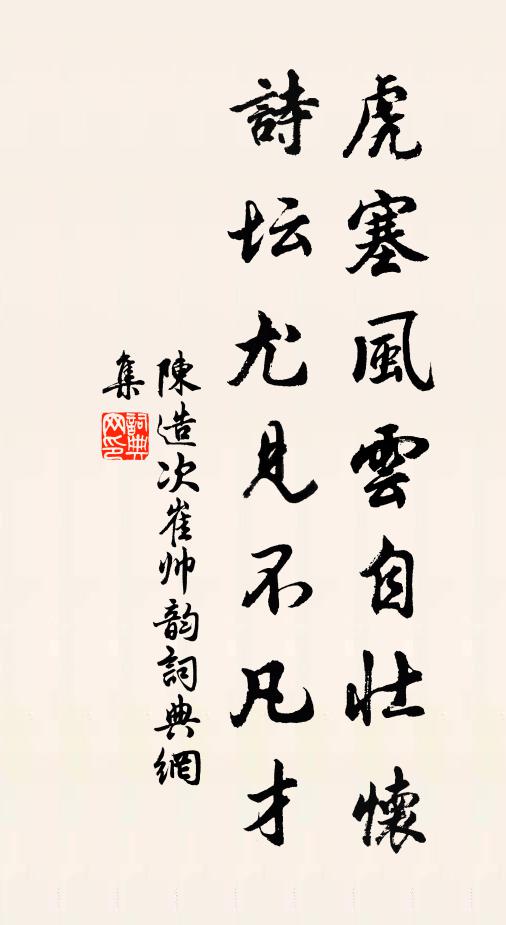 虎塞風雲自壮懷
詩坛尤見不凡才
陳造次崔帅韵詞典網
集
詞典網印